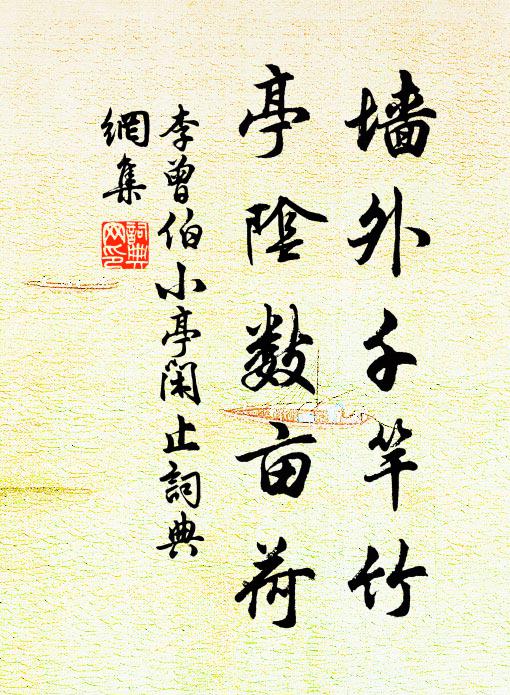 墙外千竿竹
亭陰数亩荷
李曾伯小亭閑止詞典
網集
詞典
网印